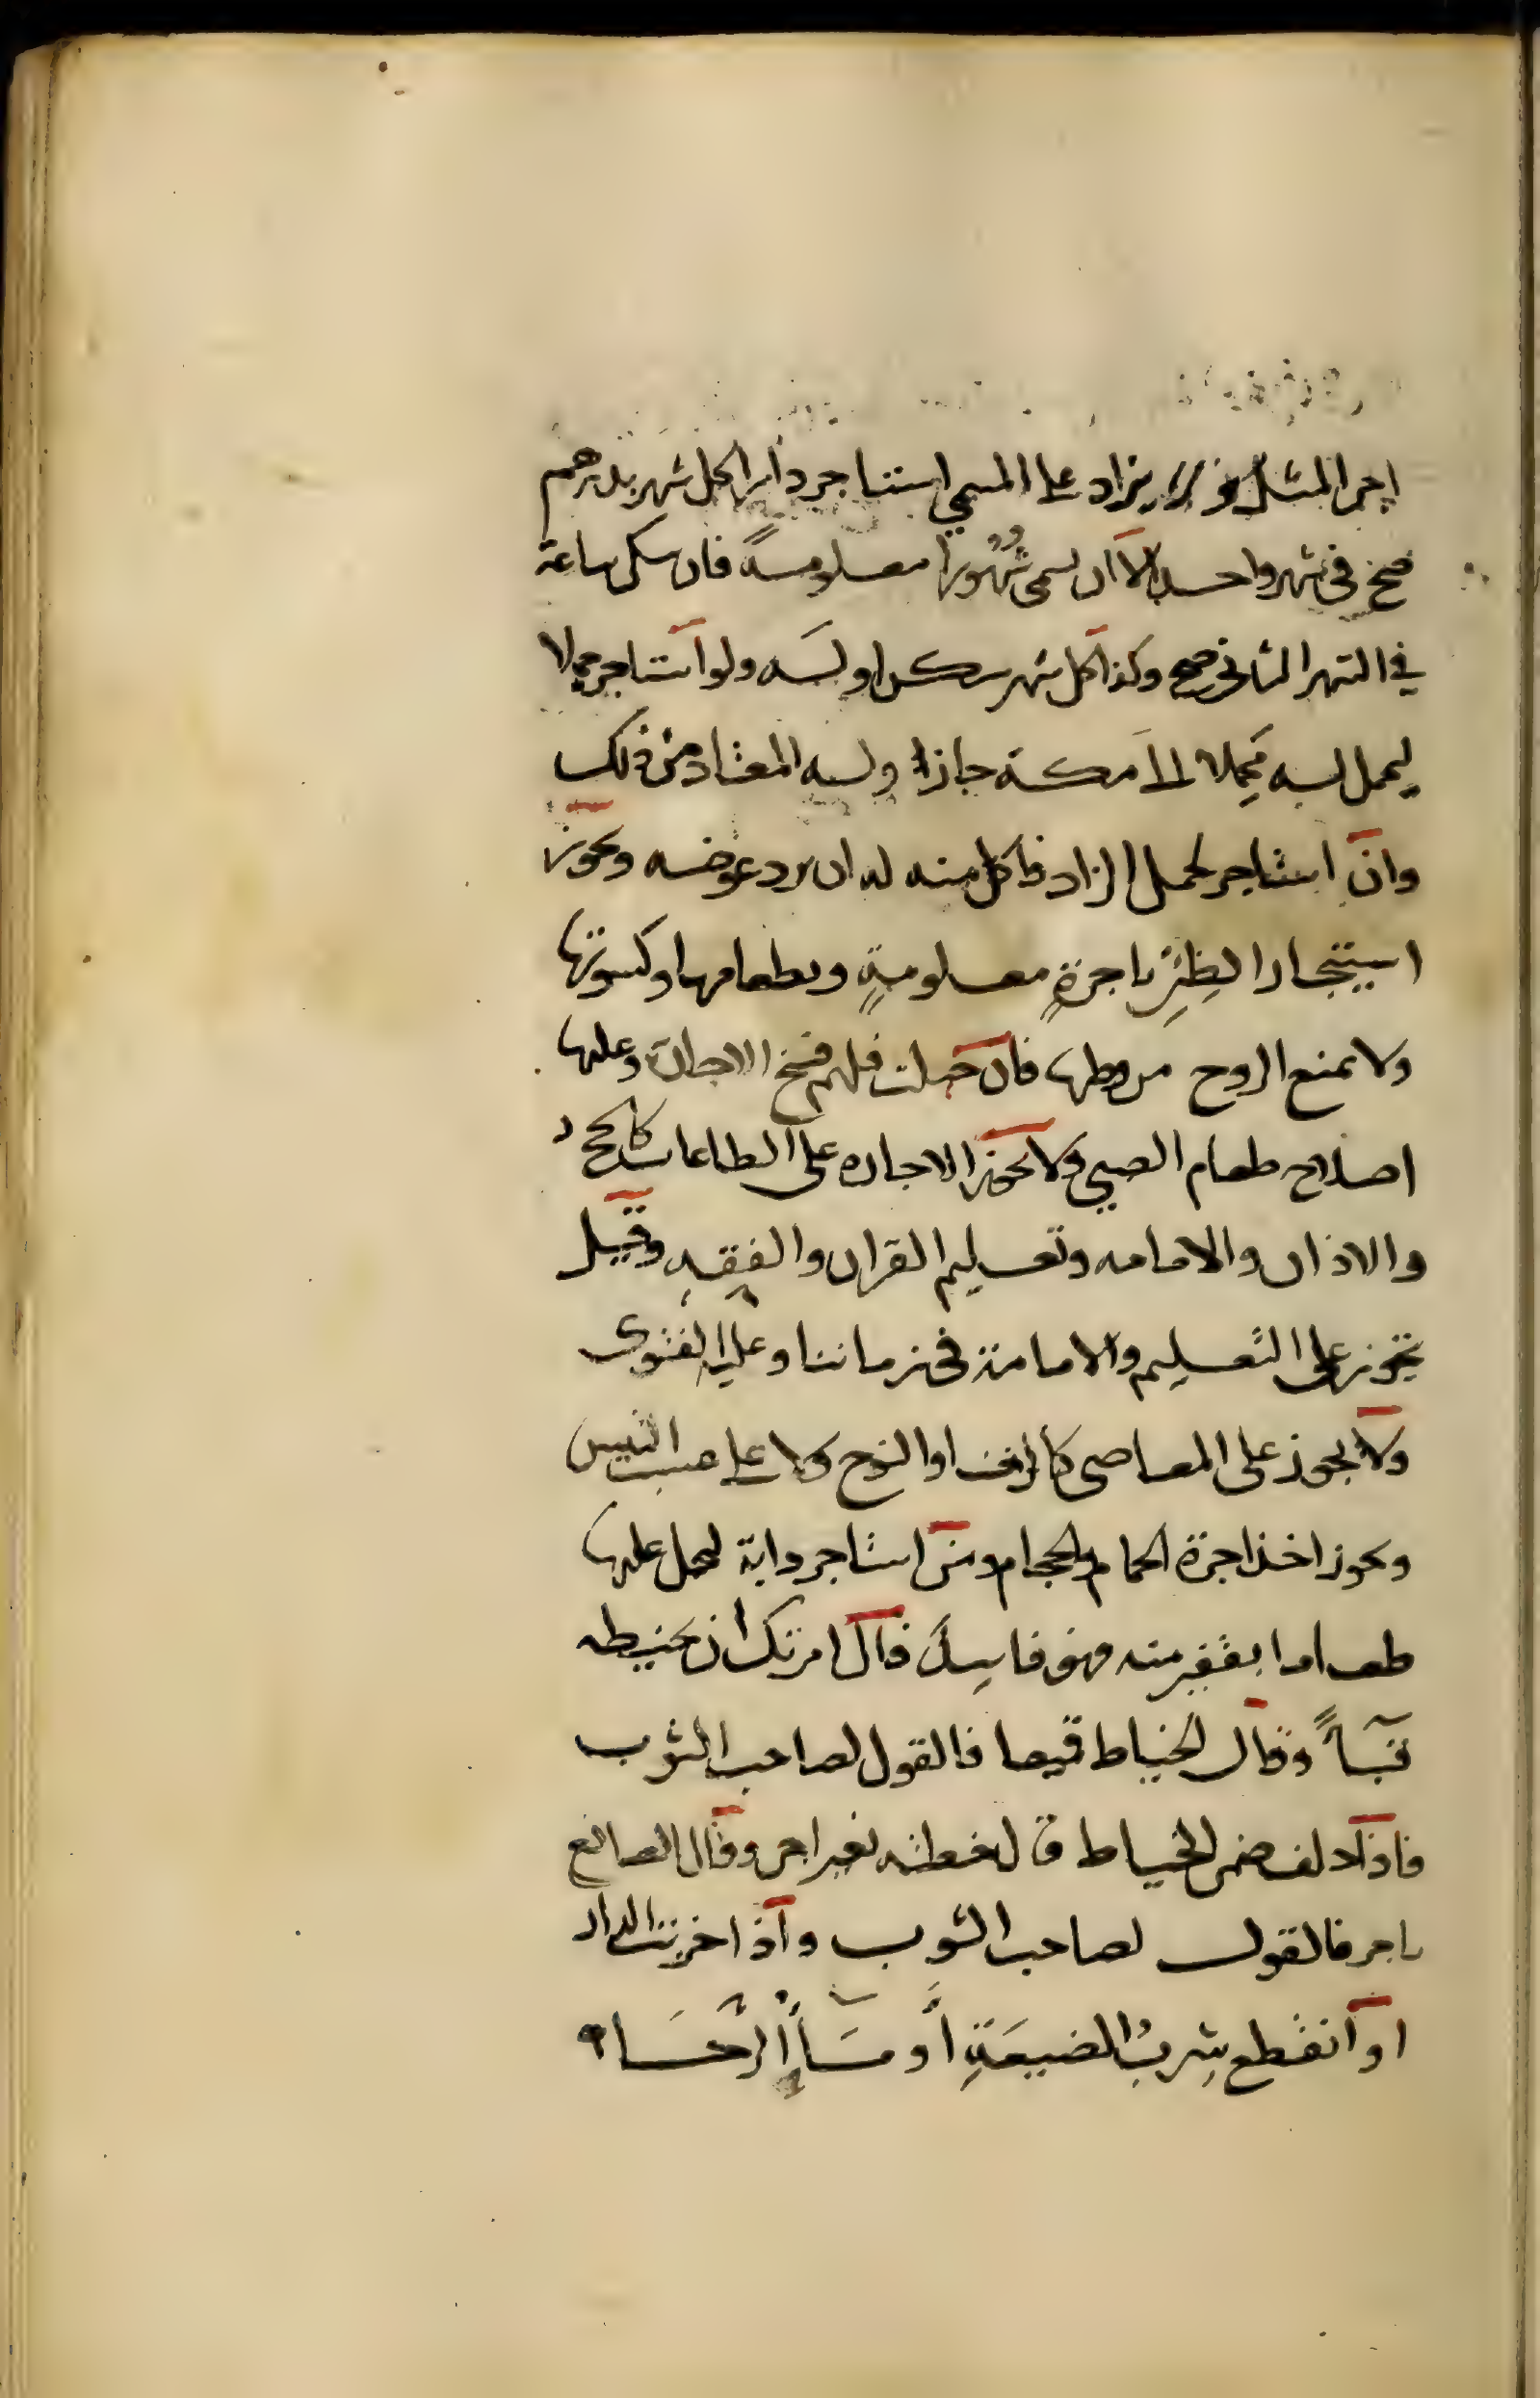 اجر المثل ولا يزاد على المسمى استاجر دارا كل شهر بدرهم
صح في شهر واحد الا ان يسمى شُهُورًا معلومةً فان سكن ساعة
في الشهر الثاني صح وكذا كل شهر سكن اوله ولو استاجر جملا
ليحمل له محملا الى مكة جاز وله المعتاد من ذلك
وان استاجر لحمل الزاد فاكل منه له ان يرد عوضه ويجوز
استيجار الظِئرِ باجرةٍ معلومةٍ وبطعامها وكسوتها
ولا يمنع الزوج من وطيها فان حبلت فلهم فسخ الاجارة وعليها
اصلاح طعام الصبي ولا تجوز الاجارة على الطاعات كالحج
والاذان والامامه وتعليم القران والفقه وقيل
يجوز على التعليم والامامة في زماننا وعليه الفتوى
ولا يجوز على المعاصي كالغنا والنوح ولا على عسب التيس
ويجوز اخذ اجرة الحمام والحجام ومن استاجر دابة ليحمل عليها
طعاما بقفيز منه فهو فاسد قال امرتك ان تخيطه
قبآءً وقال الخياط قميصا فالقول لصاحب الثوب
فاذا حلف ضمن الخياط قال خطته بغير اجر وقال الصانع
باجر فالقول لصاحب الثوب واذا خربت الدار
او انقطع شِربُ الضيعَةِ أو مَآءُ الرَّحَا